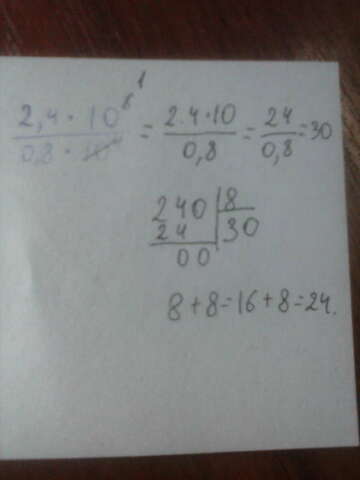 2,4 · 10⁸ ¹ / 0,8 · 10 = 2.4·10 / 0,8 = 24 / 0,8 = 30
240 | 8
24 | 30
00
8+8=16+8=24.